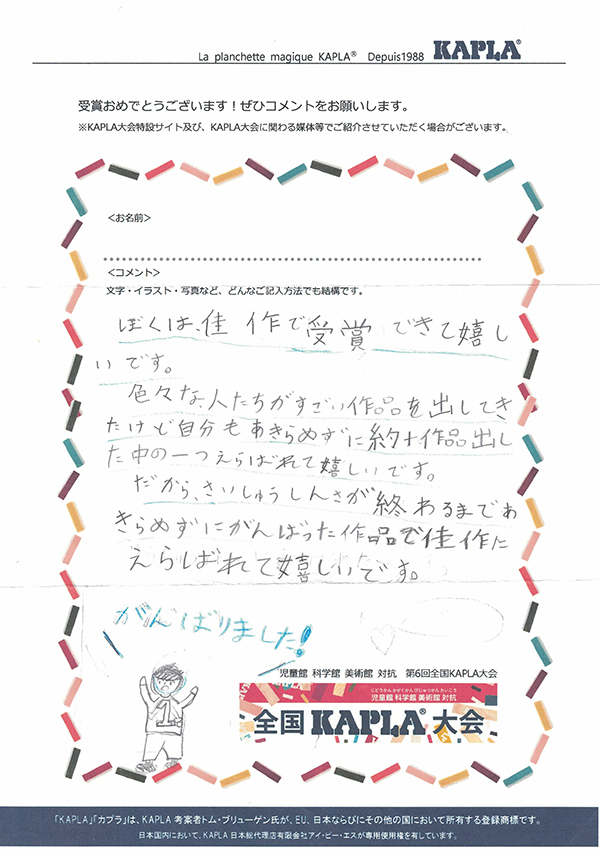 La planchette magique KAPLA® Depuis1988 KAPLA®
受賞おめでとうございます！ぜひコメントをお願いします。
※KAPLA大会特設サイト及び、KAPLA大会に関わる媒体等でご紹介させていただく場合がございます。
<お名前>
<コメント>
文字・イラスト・写真など、どんなご記入方法でも結構です。
ぼくは、佳作で受賞できて嬉し
いです。
色々な、人たちがすごい作品を出してき
たけど自分もあきらめずに約十作品出し
た中の一つえらばれて嬉しいです。
だから、さいしゅうしんさが終わるまであ
きらめずにがんばった作品で佳作に
えらばれて嬉しいです。
がんばりました!
1
児童館 科学館 美術館 対抗 第6回全国KAPLA大会
じどうかん かがくかん びじゅつかん たいこう
児童館 科学館 美術館 対抗
全国 KAPLA® 大会
「KAPLA」「カプラ」は、KAPLA 考案者トム・ブリューゲン氏が、EU、日本ならびにその他の国において所有する登録商標です。
日本国内において、KAPLA 日本総代理店有限会社アイ・ピー・エスが専用使用権を有しています。